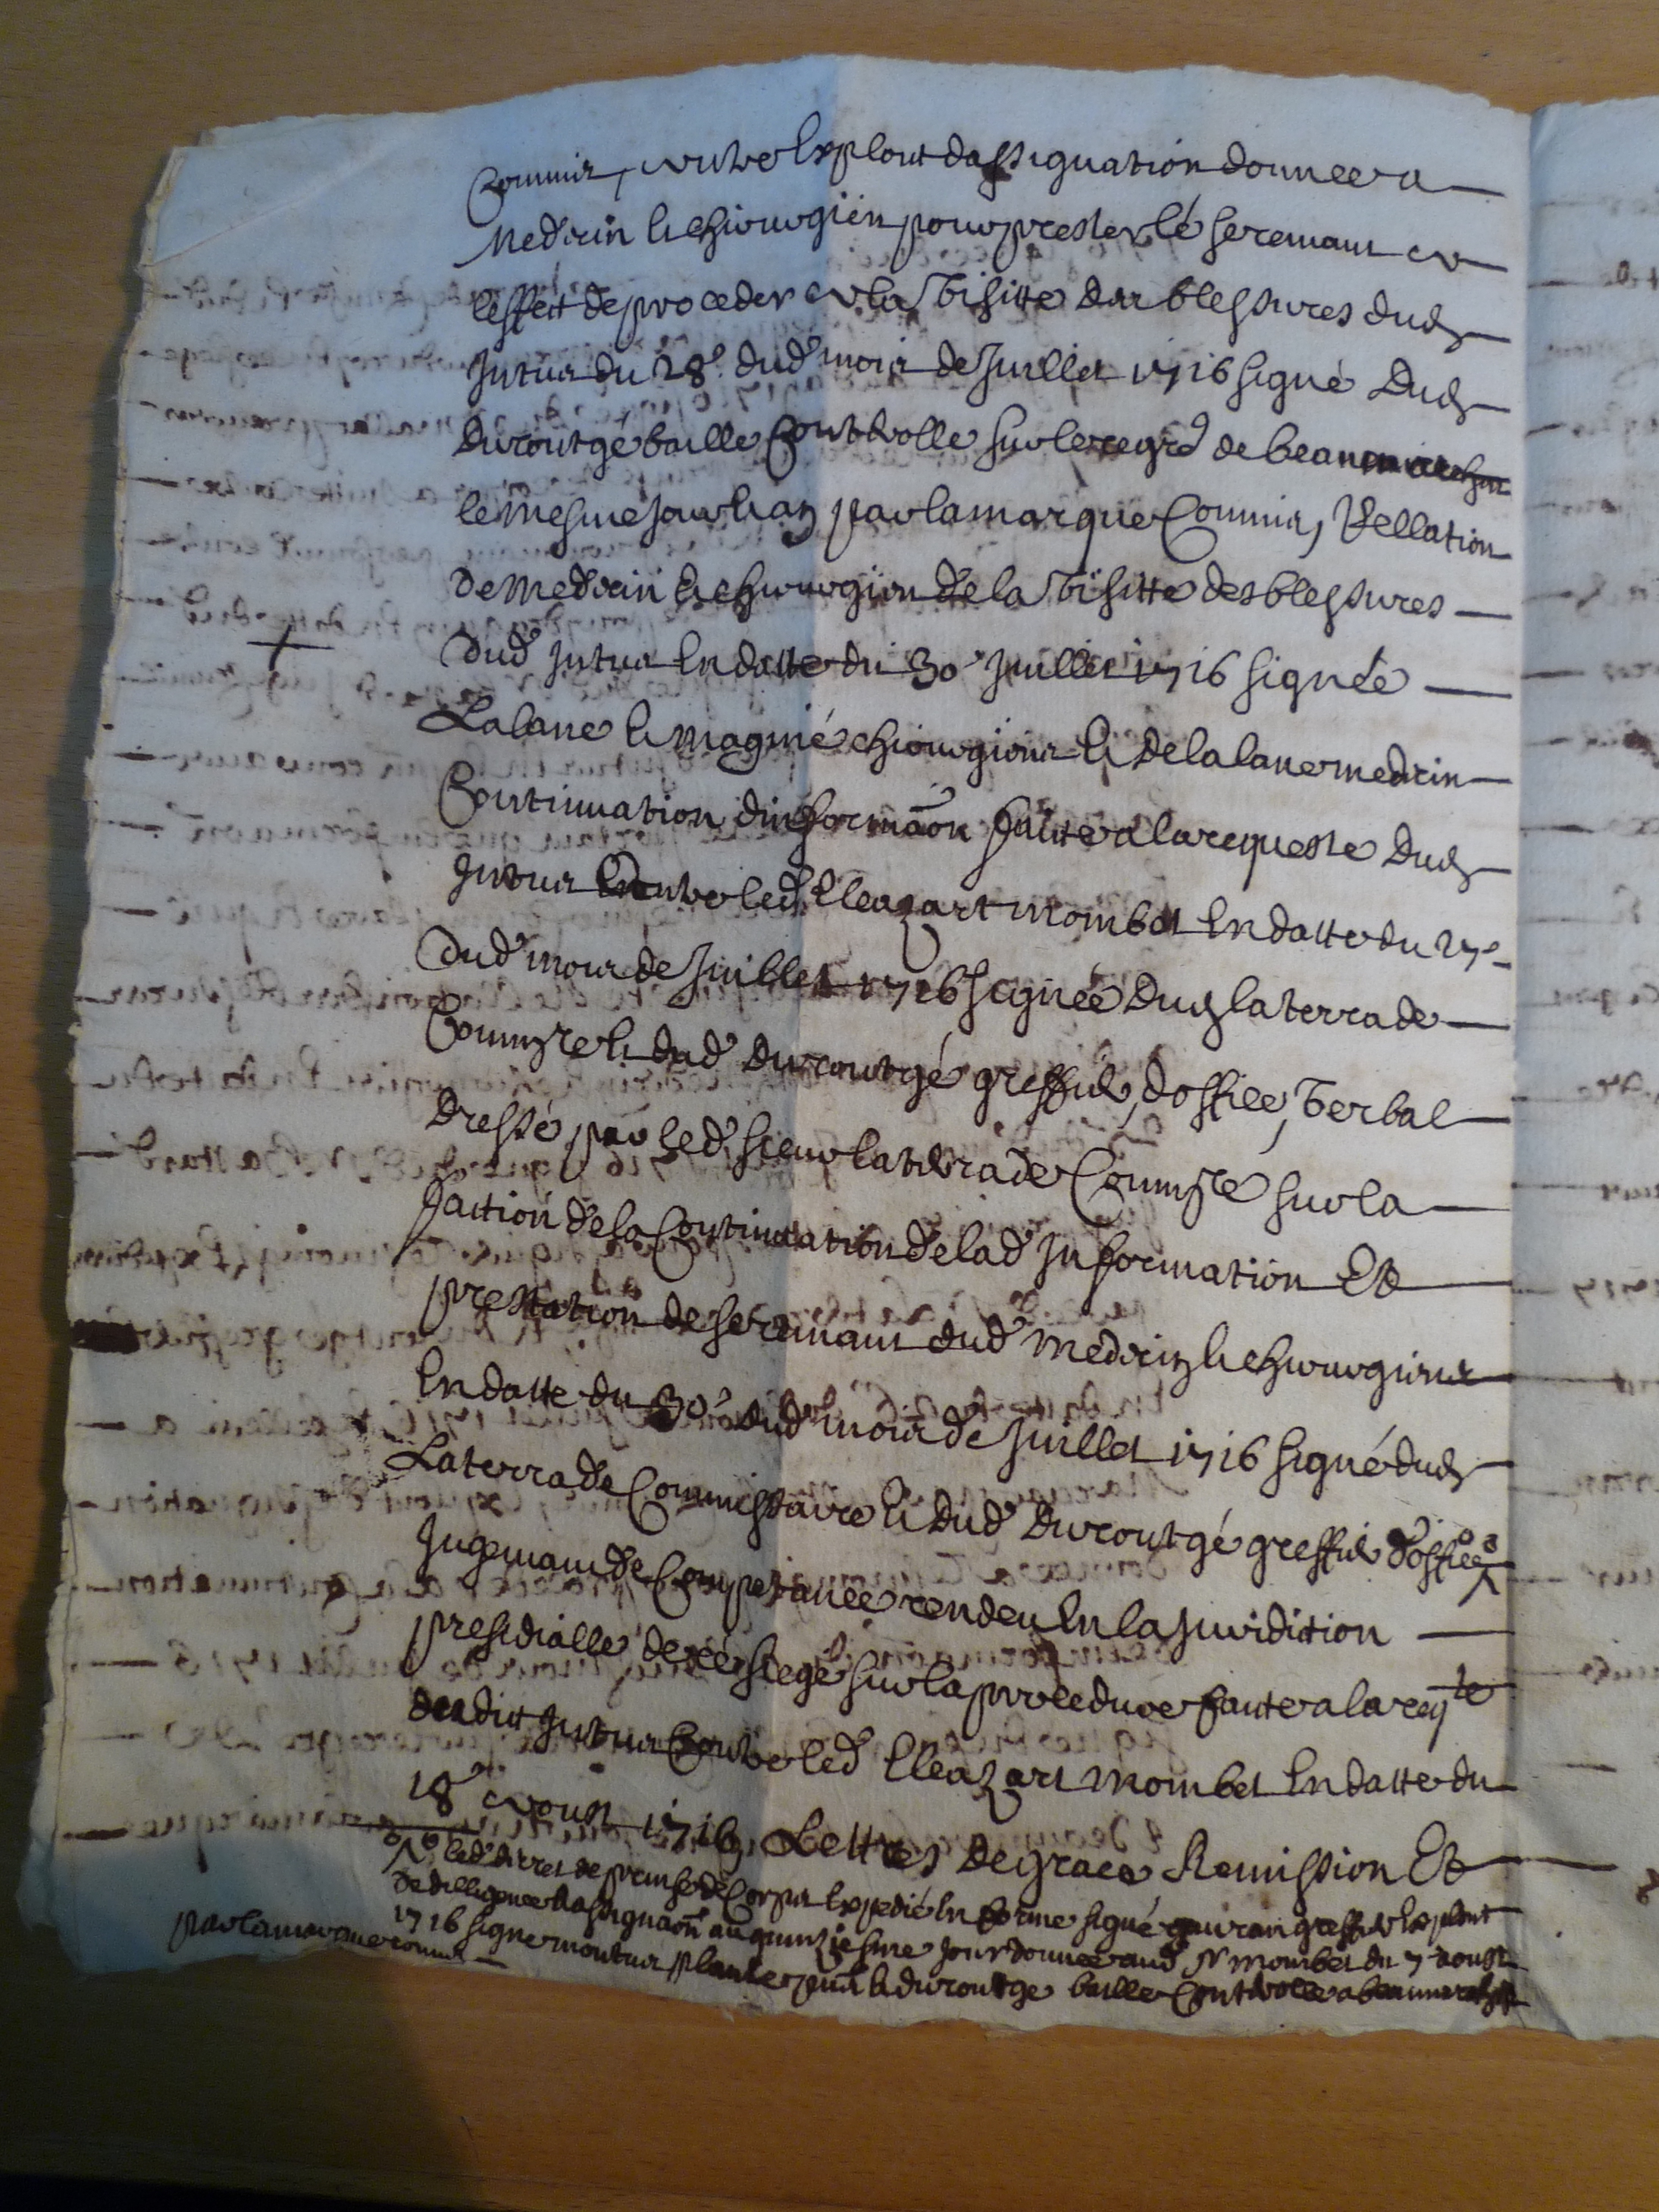 Commis, autre Exploit dassignation donnee a
Medecin Et chirurgien pour prester le seremant a
leffect de proceder a la visitte des blessures dud
Jutur du 28e dud mois de Juillet 1716 signé Dud
Duroutgé baille Controlle sur le regre de beaumarches
le mesme jour Et an par lamarque Commis, Rellation
de medecin Et chirurgien de la visitte des blessures
dud Jutur En datte du 30e Juillet 1716 signée
Lalane Et magnié chirurgiens Et Delalane medecin
Continuation dinformaôn faitte a la requeste Dud
Jutur Contre led Eleazart mombet En datte du
dud mois de Juillet 1716 signée Dud laterrade
Commre Et dud Duroutgé greffier doffice, verbal
Dressé par led sieur laterrade Commre sur la
faction de la Continuation de lad Information Et
prestation de seremant dud medecin Et chirurgiens
En datte du 30e dud mois de Juillet 1716 signé dud
Laterrade Commissaire Et dud Duroutgé greffier doffice
Jugemant de Competance rendeu En la juridition
presidialle de ce siege sur la procedure faitte a la reqte
dudit Jutur Contre led Eleazart mombet En datte du
18e aoust 1716, Lettres De grace Remission Et
led decret de prinse de Corps Expedié En forme signé gauran greffier Exploit
de dilligence Et assignaôn au quinziesme jour donnee aud Sr mombet du 7 aoust
1716 signe montus Et duroutge baille Controlle a beaumarches
par lamarque commis